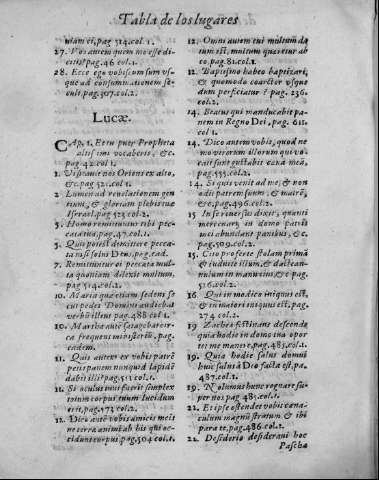 Tabla de los lugares
niam ei, pag 314. col. 1.
27. Vos autem quem me esse di-
citis? pag 46 col. 1.
28. Ecce ego vobiscum sum vs-
que ad consummationem sæ-
culi. pag. 307. col. 2.
Lucæ.
CAp. 1. Et tu puer Propheta
altissimi vocaberis, &c.
pag 42. col 1.
1 Visitauit nos Oriens ex alto,
&c pag 321. col 1.
2 Lumen ad reuelationem gen
tium, & gloriam plebis tuæ
Israel. pag 523 col 2.
5. Homo remittuntur tibi pec-
cata tua pag. 47. col. 1.
5. Quis potest dimittere pecca-
ta nisi solus Deus, pag. ead.
7. Remittuntur ei peccata mul-
ta quoniam dilexit multum.
pag 514. col. 2.
10. Maria quæ etiam sedens se
cus pedes Domini audiebat
verbũ illius pag. 488 col 1.
10. Martha autẽ satagebat cir-
ca frequens ministeriũ, pag.
eadem.
11. Quis autem ex vobis patrẽ
petit panem nunquid lapidẽ
dabit illi? pag. 511 col 1.
11. Si oculus tuus fuerit simplex
totum corpus tuum lucidum
erit. pag. 173 col 2.
12. Dico autẽ vobis amicis meis
ne terreamini ab his qui oc-
cidunt corpus. pag. 504 col. 1.
12. Omni autem cui multum da
tum est, multum quæretur ab
eo. pag. 81. col 1.
12. Baptismo habeo baptizari,
& quomodo coarctor vsque
dum perficiatur? pag. 236.
col. 2.
14. Beatus qui manducabit pa-
nem in Regno Dei, pag. 611.
col 1
14. Dico autem vobis, quod ne
mo virorum illorum qui vo-
cati sunt gustabit cœnã meã,
pag. 555. col 2.
14. Si quis venit ad me, & non
odit patrem suum, & matrẽ,
&c, pag. 496. col 2.
15 In se reuersus dixit, quanti
mercenarij in domo patris
mei abundant panibus, &c.
pag. 509. col 2.
15. Cito proferte stolam primã
& induite illum, & date an-
nulum in manu eius, &c pag.
516. col 2.
16 Qui in modico iniquus est,
& in maiori iniquus est. pag.
274 col 2.
19 Zachee festinans descende
quia hodie in domo tua opor
tet me manere. pag. 485. col 1.
19. Quia hodie salus domui
huic salus à Deo facta est. pa.
487. col 1.
19. Nolumus hunc regnare su-
per nos pag 485. col. 1.
22. Et ipse ostendet vobis cœna-
culum magnũ stratum & ibi
parate, pag. 486. col 1.
22. Desiderio desideraui hoc
Pascha